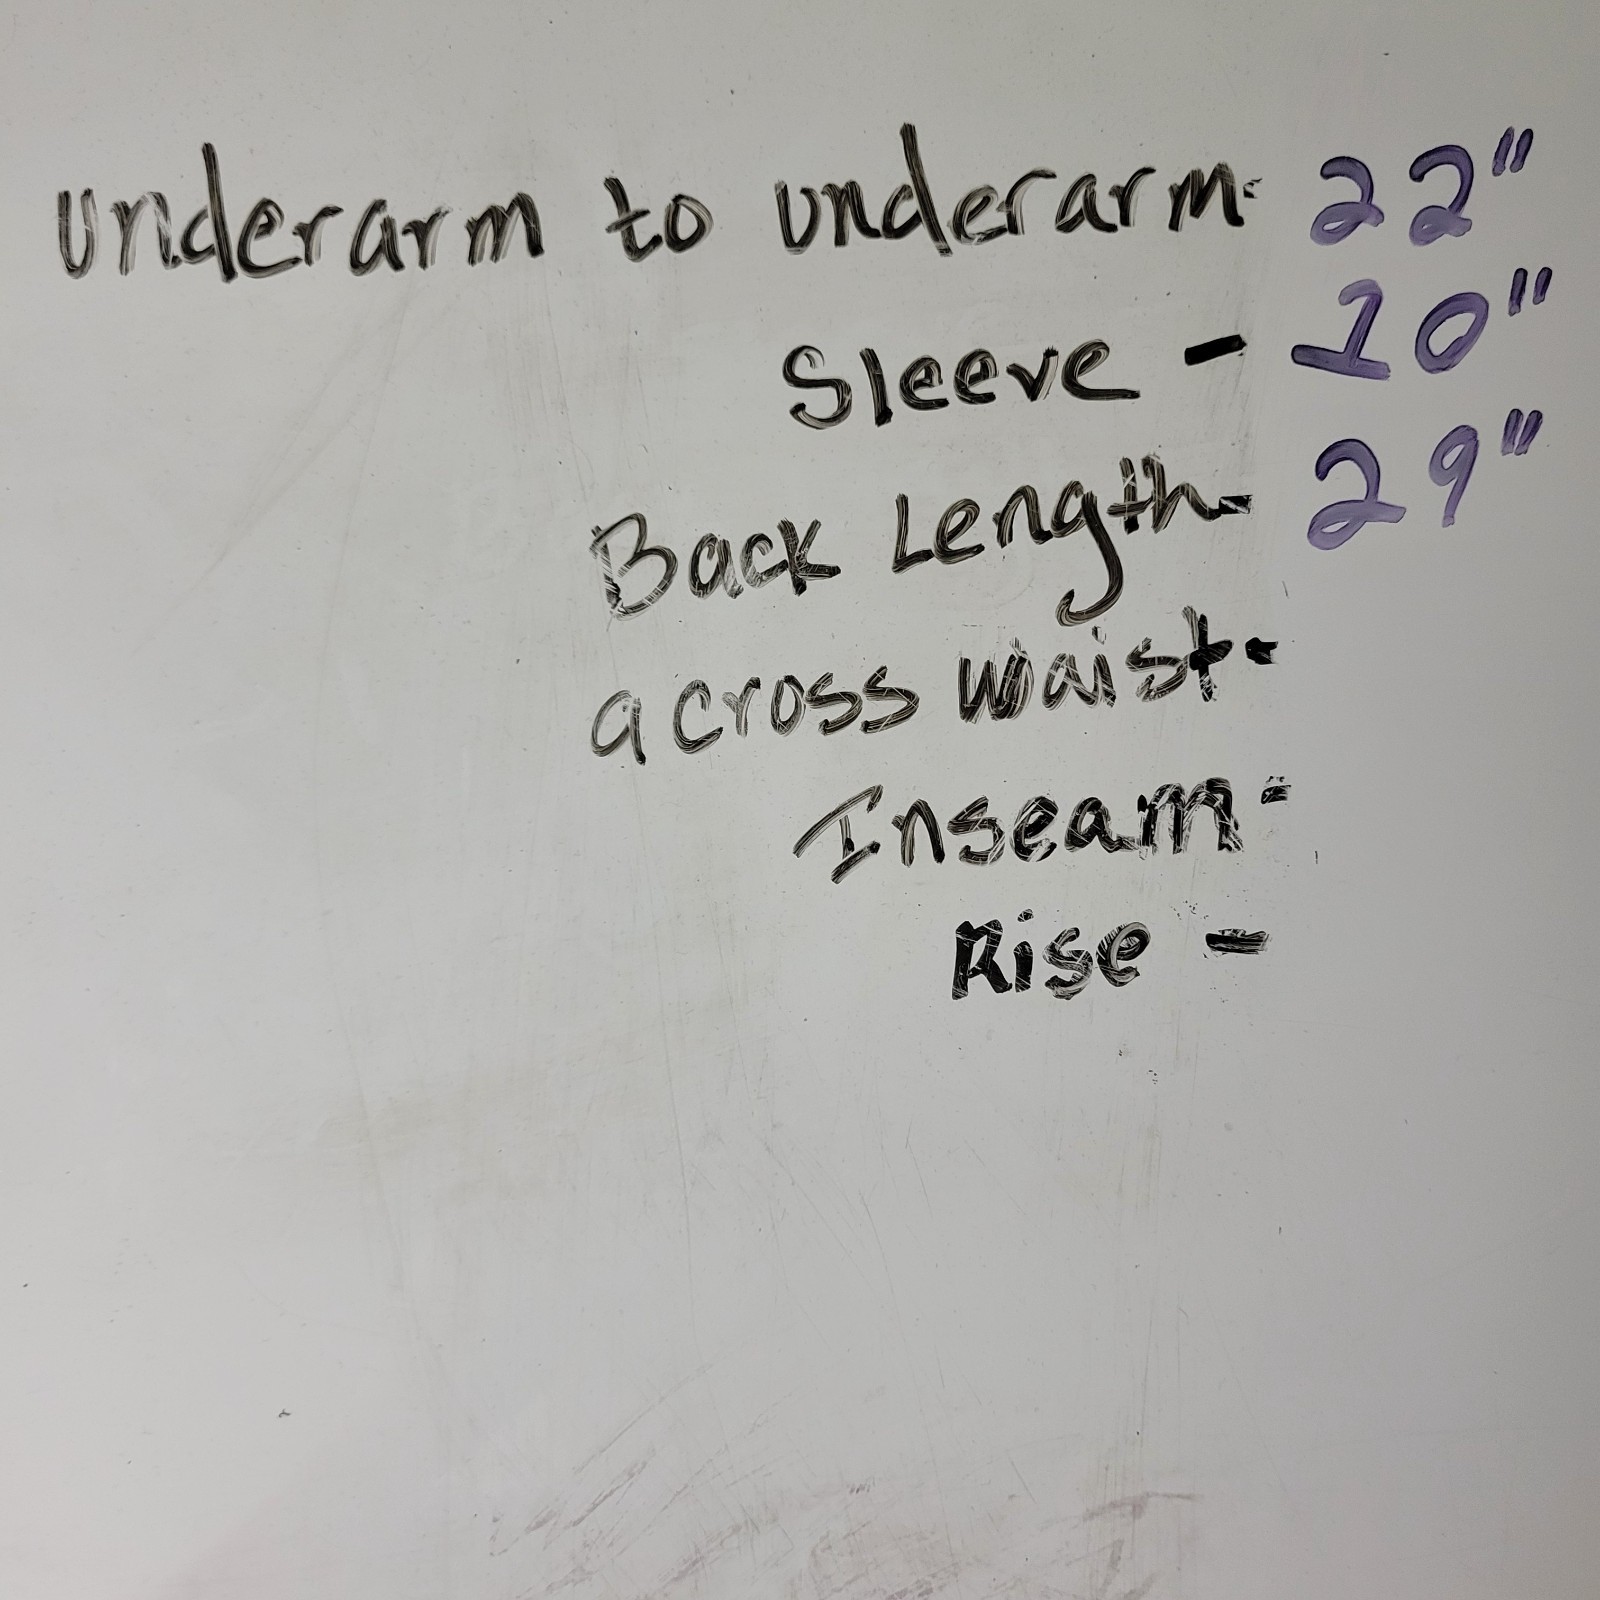 underarm to underarm- 22"
Sleeve - 10"
Back Length- 29"
across waist-
Inseam-
Rise -